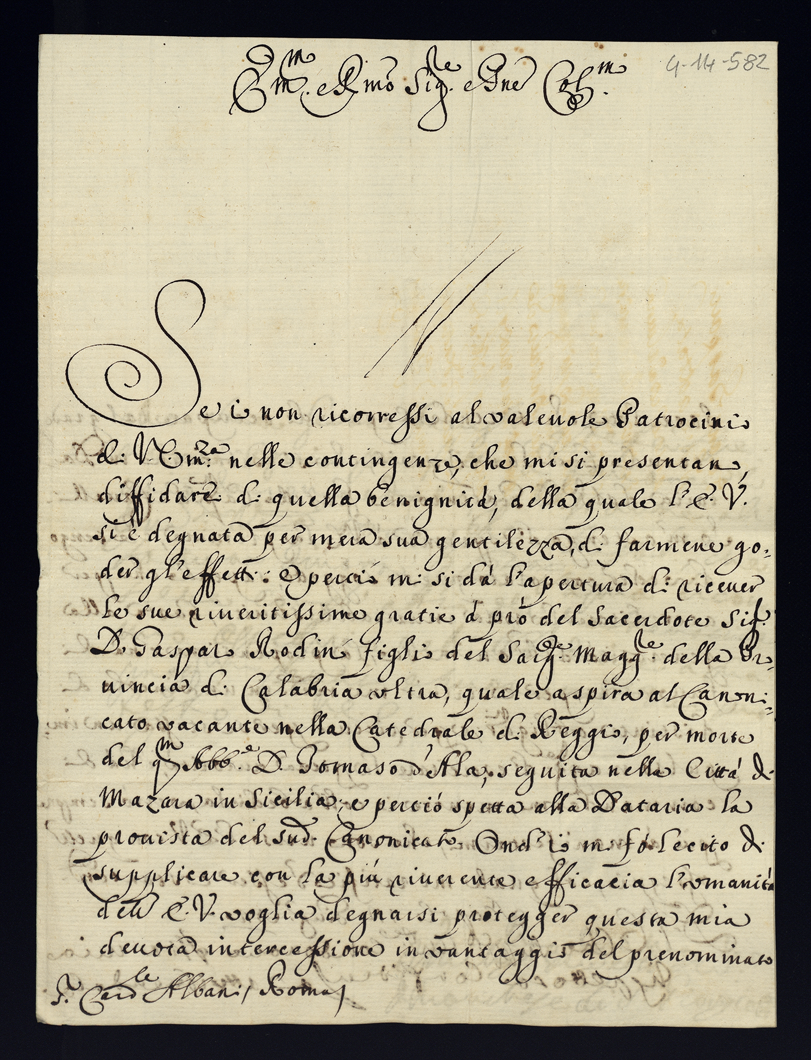 4-14-582
Em.ᵐ e Rmõ Sig.ʳᵉ e Pñe Col.ᵐ
Se io non ricorressi al valeuole Patrocinio
di V. Em.ᶻᵃ nelle contingenze, che mi si presentano,
diffidarei di quella benignità, della quale l'E. V.
si è degnata per mera sua gentilezza, di farmene go-
der gl'effetti: E perciò mi si dà l'apertura di riceuer
le sue riueritissime gratie à prò del Sacerdote Sig.ʳ
D. Gaspar Rodinò figlio del Sarg.ᵗᵉ Magg.ʳᵉ della Pro-
uincia di Calabria vltra, quale aspira al Canoni-
cato vacante nella Catedrale di Reggio, per morte
del qm̃ Abb.ᵉ D. Tomaso d'Ala, seguita nella Città di
Mazara in Sicilia, e perciò spetta alla Dataria la
prouista del sud.º Canonicato. Ond'io mi fò lecito di
supplicare con la più riuerente efficacia l'vmanità
dell'E. V. voglia degnarsi protegger questa mia
deuota intercessione in vantaggio del prenominato
S.ʳ Card.ˡᵉ Albani / Roma /